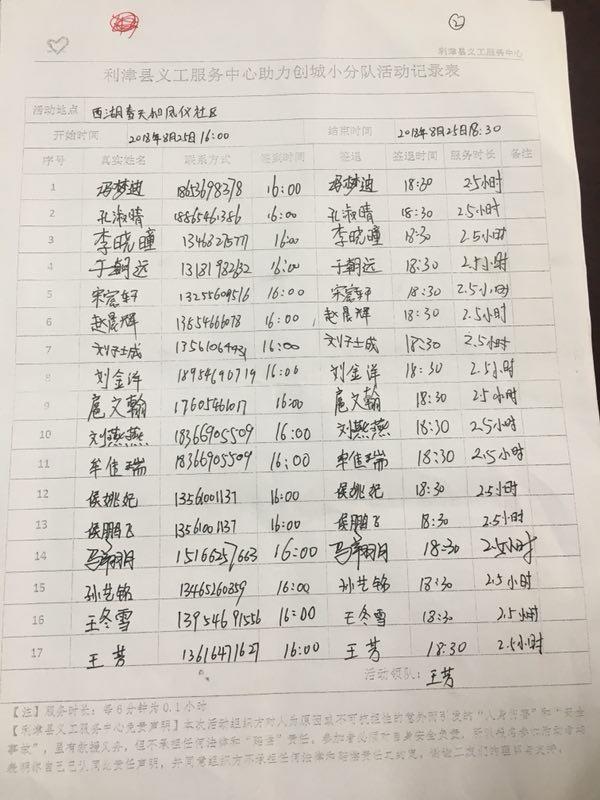 ②
利津县义工服务中心
利津县义工服务中心助力创城小分队活动记录表
活动地点 西湖春天和凤仪社区
开始时间 2018年8月25日16:00 结束时间 2018年8月25日18:30
序号 真实姓名 联系方式 签到时间 签退 签退时间 服务时长 备注
1 冯梦迪 18653698378 16:00 冯梦迪 18:30 2.5小时
2 孔淑晴 16:00 孔淑晴 18:30 2.5小时
3 李晓瞳 16:00 李晓瞳 18:30 2.5小时
4 于朝远 16:00 于朝远 18:30 2.5小时
5 13255609516 16:00 18:30 2.5小时
6 赵晨辉 13654666078 16:00 赵晨辉 18:30 2.5小时
7 16:00 18:30 2.5小时
8 刘金洋 18954690719 16:00 刘金洋 18:30 2.5小时
9 扈文翰 17605461017 16:00 扈文翰 18:30 2.5小时
10 刘燕燕 18366905509 16:00 刘燕燕 18:30 2.5小时
11 牟佳瑞 18366905509 16:00 牟佳瑞 18:30 2.5小时
12 侯姚妃 13561001137 16:00 侯姚妃 18:30 2.5小时
13 侯鹏飞 13561001137 16:00 侯鹏飞 18:30 2.5小时
14 15166257663 16:00 18:30 2.5小时
15 孙艺铭 13465260359 16:00 孙艺铭 18:30 2.5小时
16 王冬雪 13954691556 16:00 王冬雪 18:30 2.5小时
17 王芳 13616471627 16:00 王芳 18:30 2.5小时
活动领队: 王芳
【注】服务时长:每6分钟为0.1小时
【利津县义工服务中心免责声明】本次活动组织方对人为原因或不可抗拒性的意外而引发的“人身伤害”和“安全
事故”,虽有救援义务,但不承担任何法律和“赔偿”责任。参加者必须对自身安全负责。所以报名参加活动者均
表明你自己已认同此责任声明,并同意组织方不承担任何法律和赔偿责任之约定。谢谢